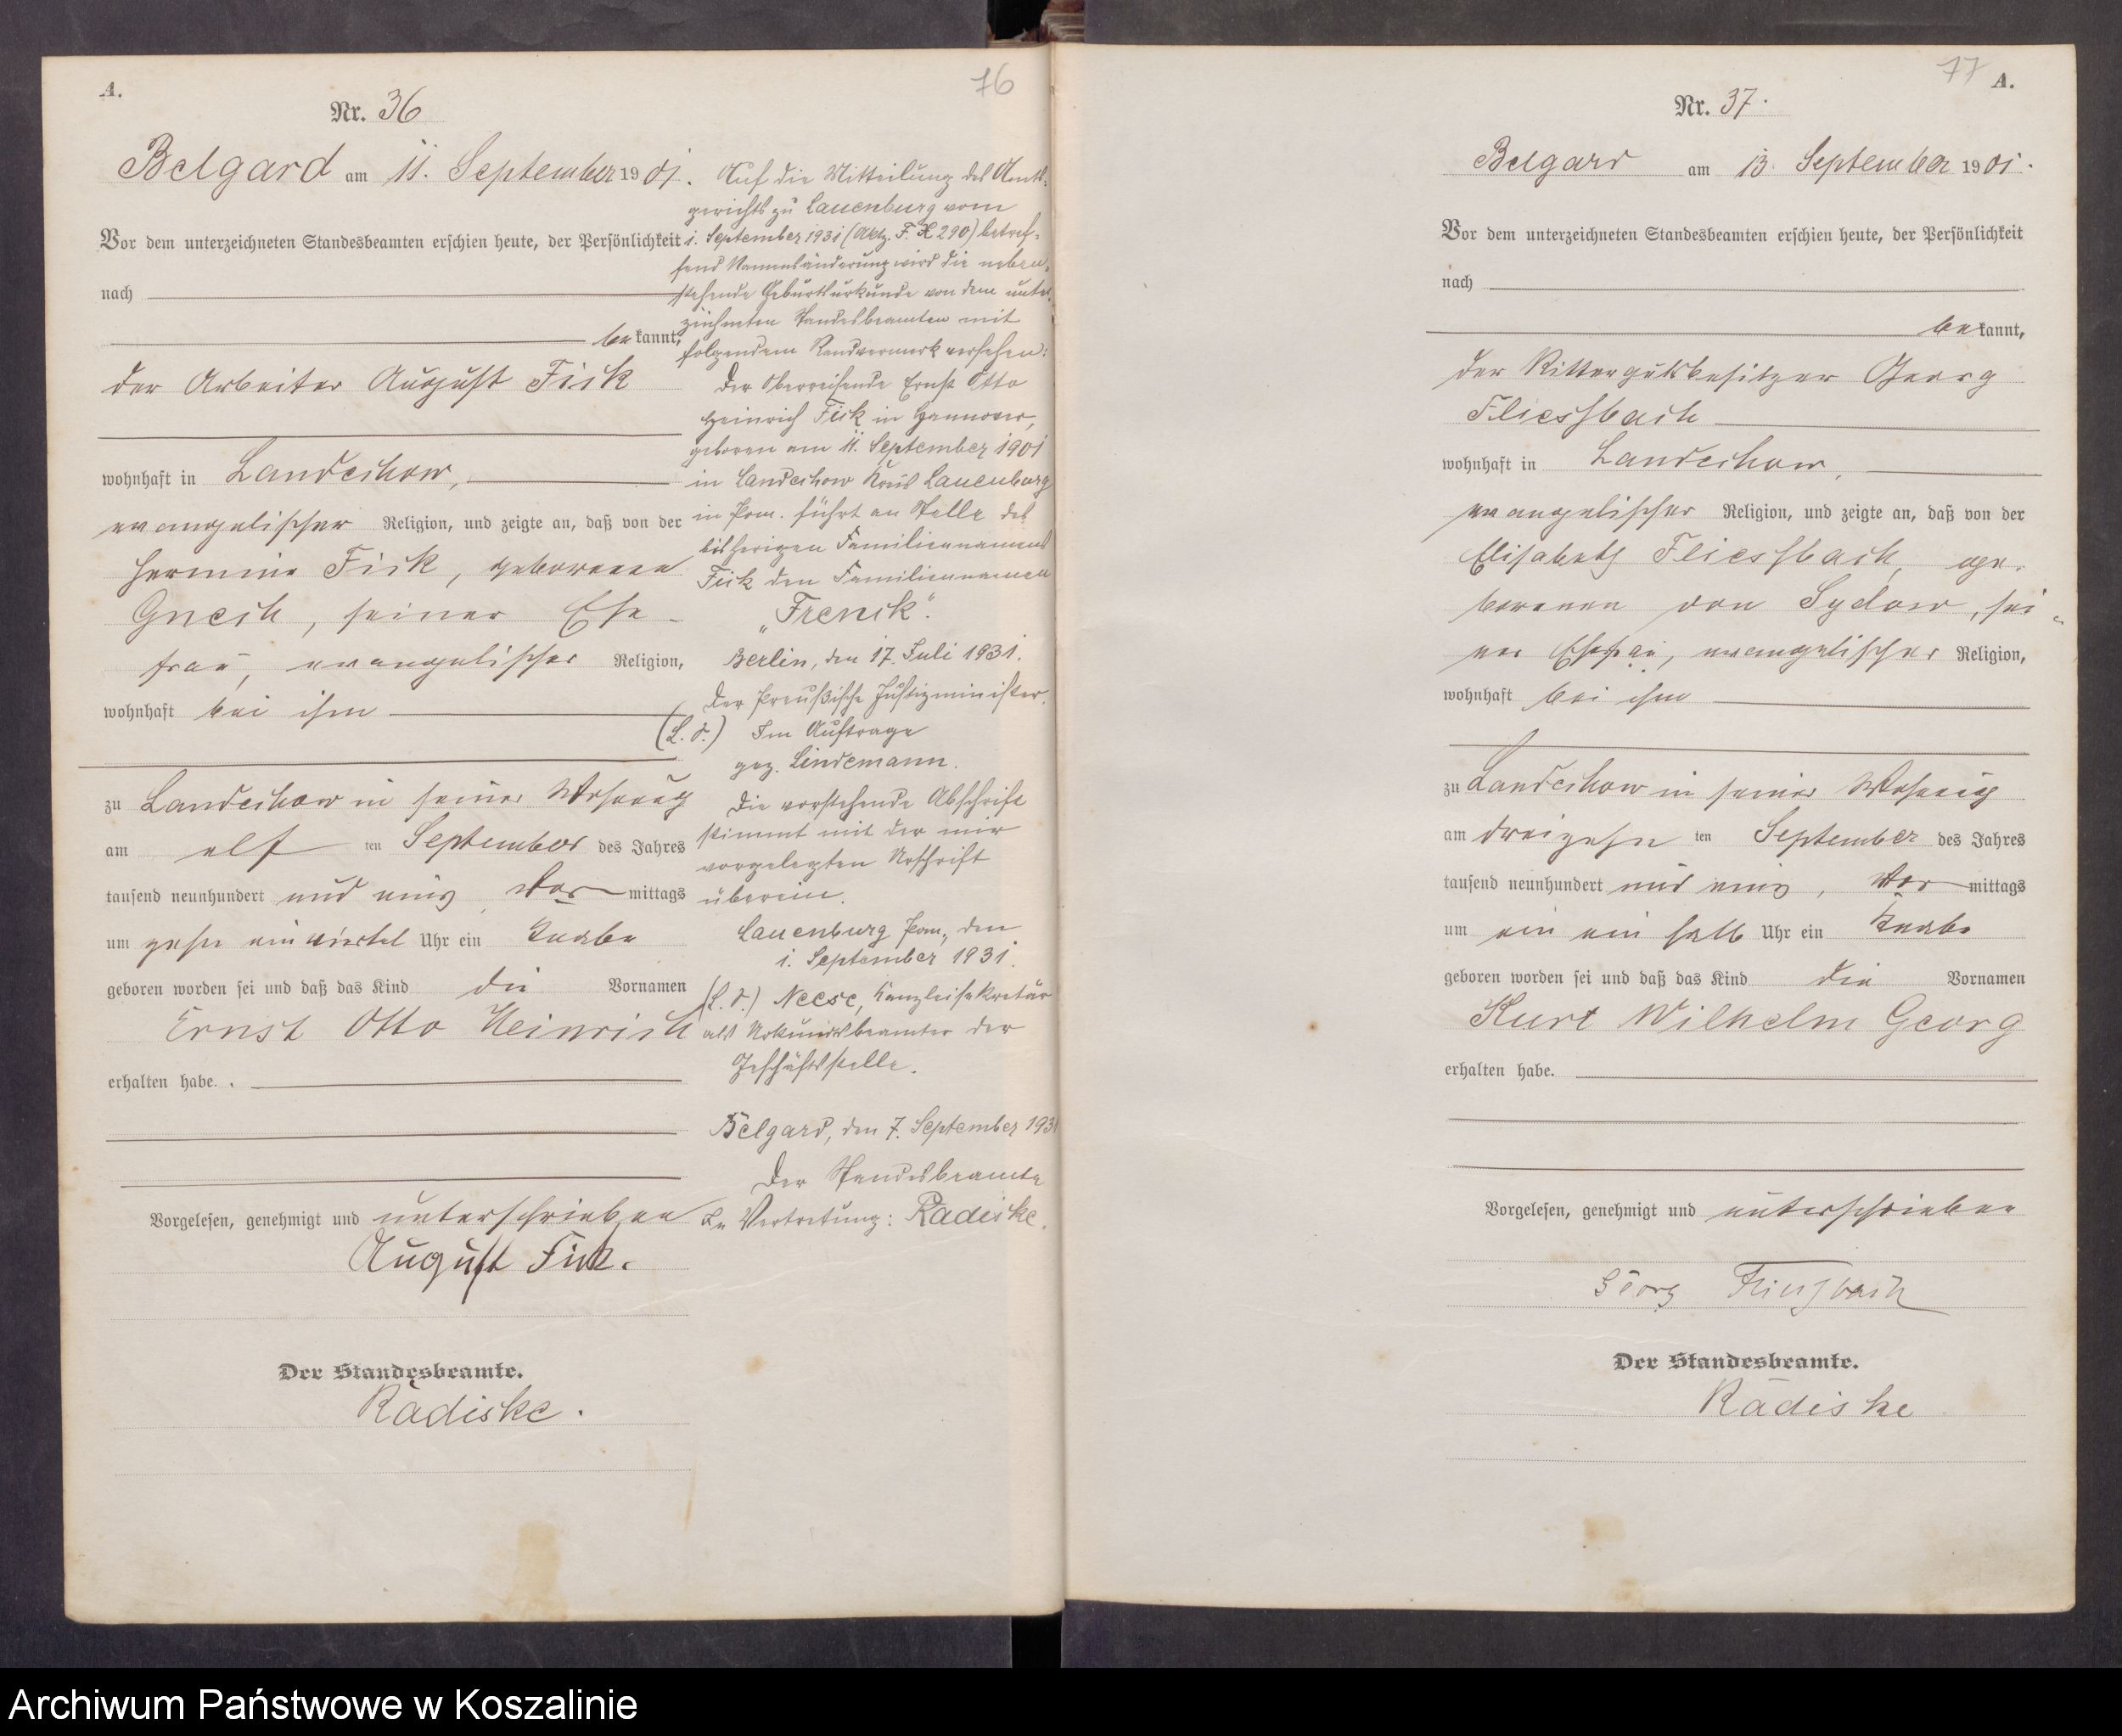 A.
76
Nr. 36
Belgard am 11. September 1901.
Vor dem unterzeichneten Standesbeamten erschien heute, der Persönlichkeit
nach
bekannt,
der Arbeiter August Fick
wohnhaft in Landechow,
evangelischer Religion, und zeigte an, daß von der
Hermine Fick, geborenen
Gnech, seiner Ehe-
frau, evangelischer Religion,
wohnhaft bei ihm
zu Landechow in seiner Wohnung
am elf ten September des Jahres
tausend neunhundert und eins, Vor mittags
um zehn ein viertel Uhr ein Knabe
geboren worden sei und daß das Kind die Vornamen
Ernst Otto Heinrich
erhalten habe.
Vorgelesen, genehmigt und unterschrieben
August Fick.
Der Standesbeamte.
Radeske.
Auf die Mitteilung des Amts-
gerichts zu Lauenburg vom
1. September 1931 (Aktz. F. X 290) betref-
fend Namensänderung wird die neben-
stehende Geburtsurkunde von dem unter-
zeichneten Standesbeamten mit
folgendem Randvermerk versehen:
Der Oberreisende Ernst Otto
Heinrich Fick in Hannover,
geboren am 11. September 1901
in Landechow Kreis Lauenburg
in Pom. führt an Stelle des
bisherigen Familiennamens
Fick den Familiennamen
„Frenck“.
Berlin, den 17. Juli 1931.
Der Preußische Justizminister.
(L. S.) Im Auftrage
gez. Lindemann.
Die vorstehende Abschrift
stimmt mit der mir
vorgelegten Urschrift
überein.
Lauenburg Pom., den
1. September 1931.
(L. S.) Neese, Kanzleisekretär
als Urkundsbeamter der
Geschäftsstelle.
Belgard, den 7. September 1931
Der Standesbeamte
In Vertretung: Radeske.
77
A.
Nr. 37.
Belgard am 13. September 1901.
Vor dem unterzeichneten Standesbeamten erschien heute, der Persönlichkeit
nach
bekannt,
der Rittergutsbesitzer Georg
Fliessbach
wohnhaft in Landechow,
evangelischer Religion, und zeigte an, daß von der
Elisabeth Fliessbach, ge-
borenen von Sydow, sei-
ner Ehefrau, evangelischer Religion,
wohnhaft bei ihm
zu Landechow in seiner Wohnung
am dreizehn ten September des Jahres
tausend neunhundert und eins, Vor mittags
um ein ein halb Uhr ein Knabe
geboren worden sei und daß das Kind die Vornamen
Kurt Wilhelm Georg
erhalten habe.
Vorgelesen, genehmigt und unterschrieben
Georg Fliessbach
Der Standesbeamte.
Radeske
Archiwum Państwowe w Koszalinie